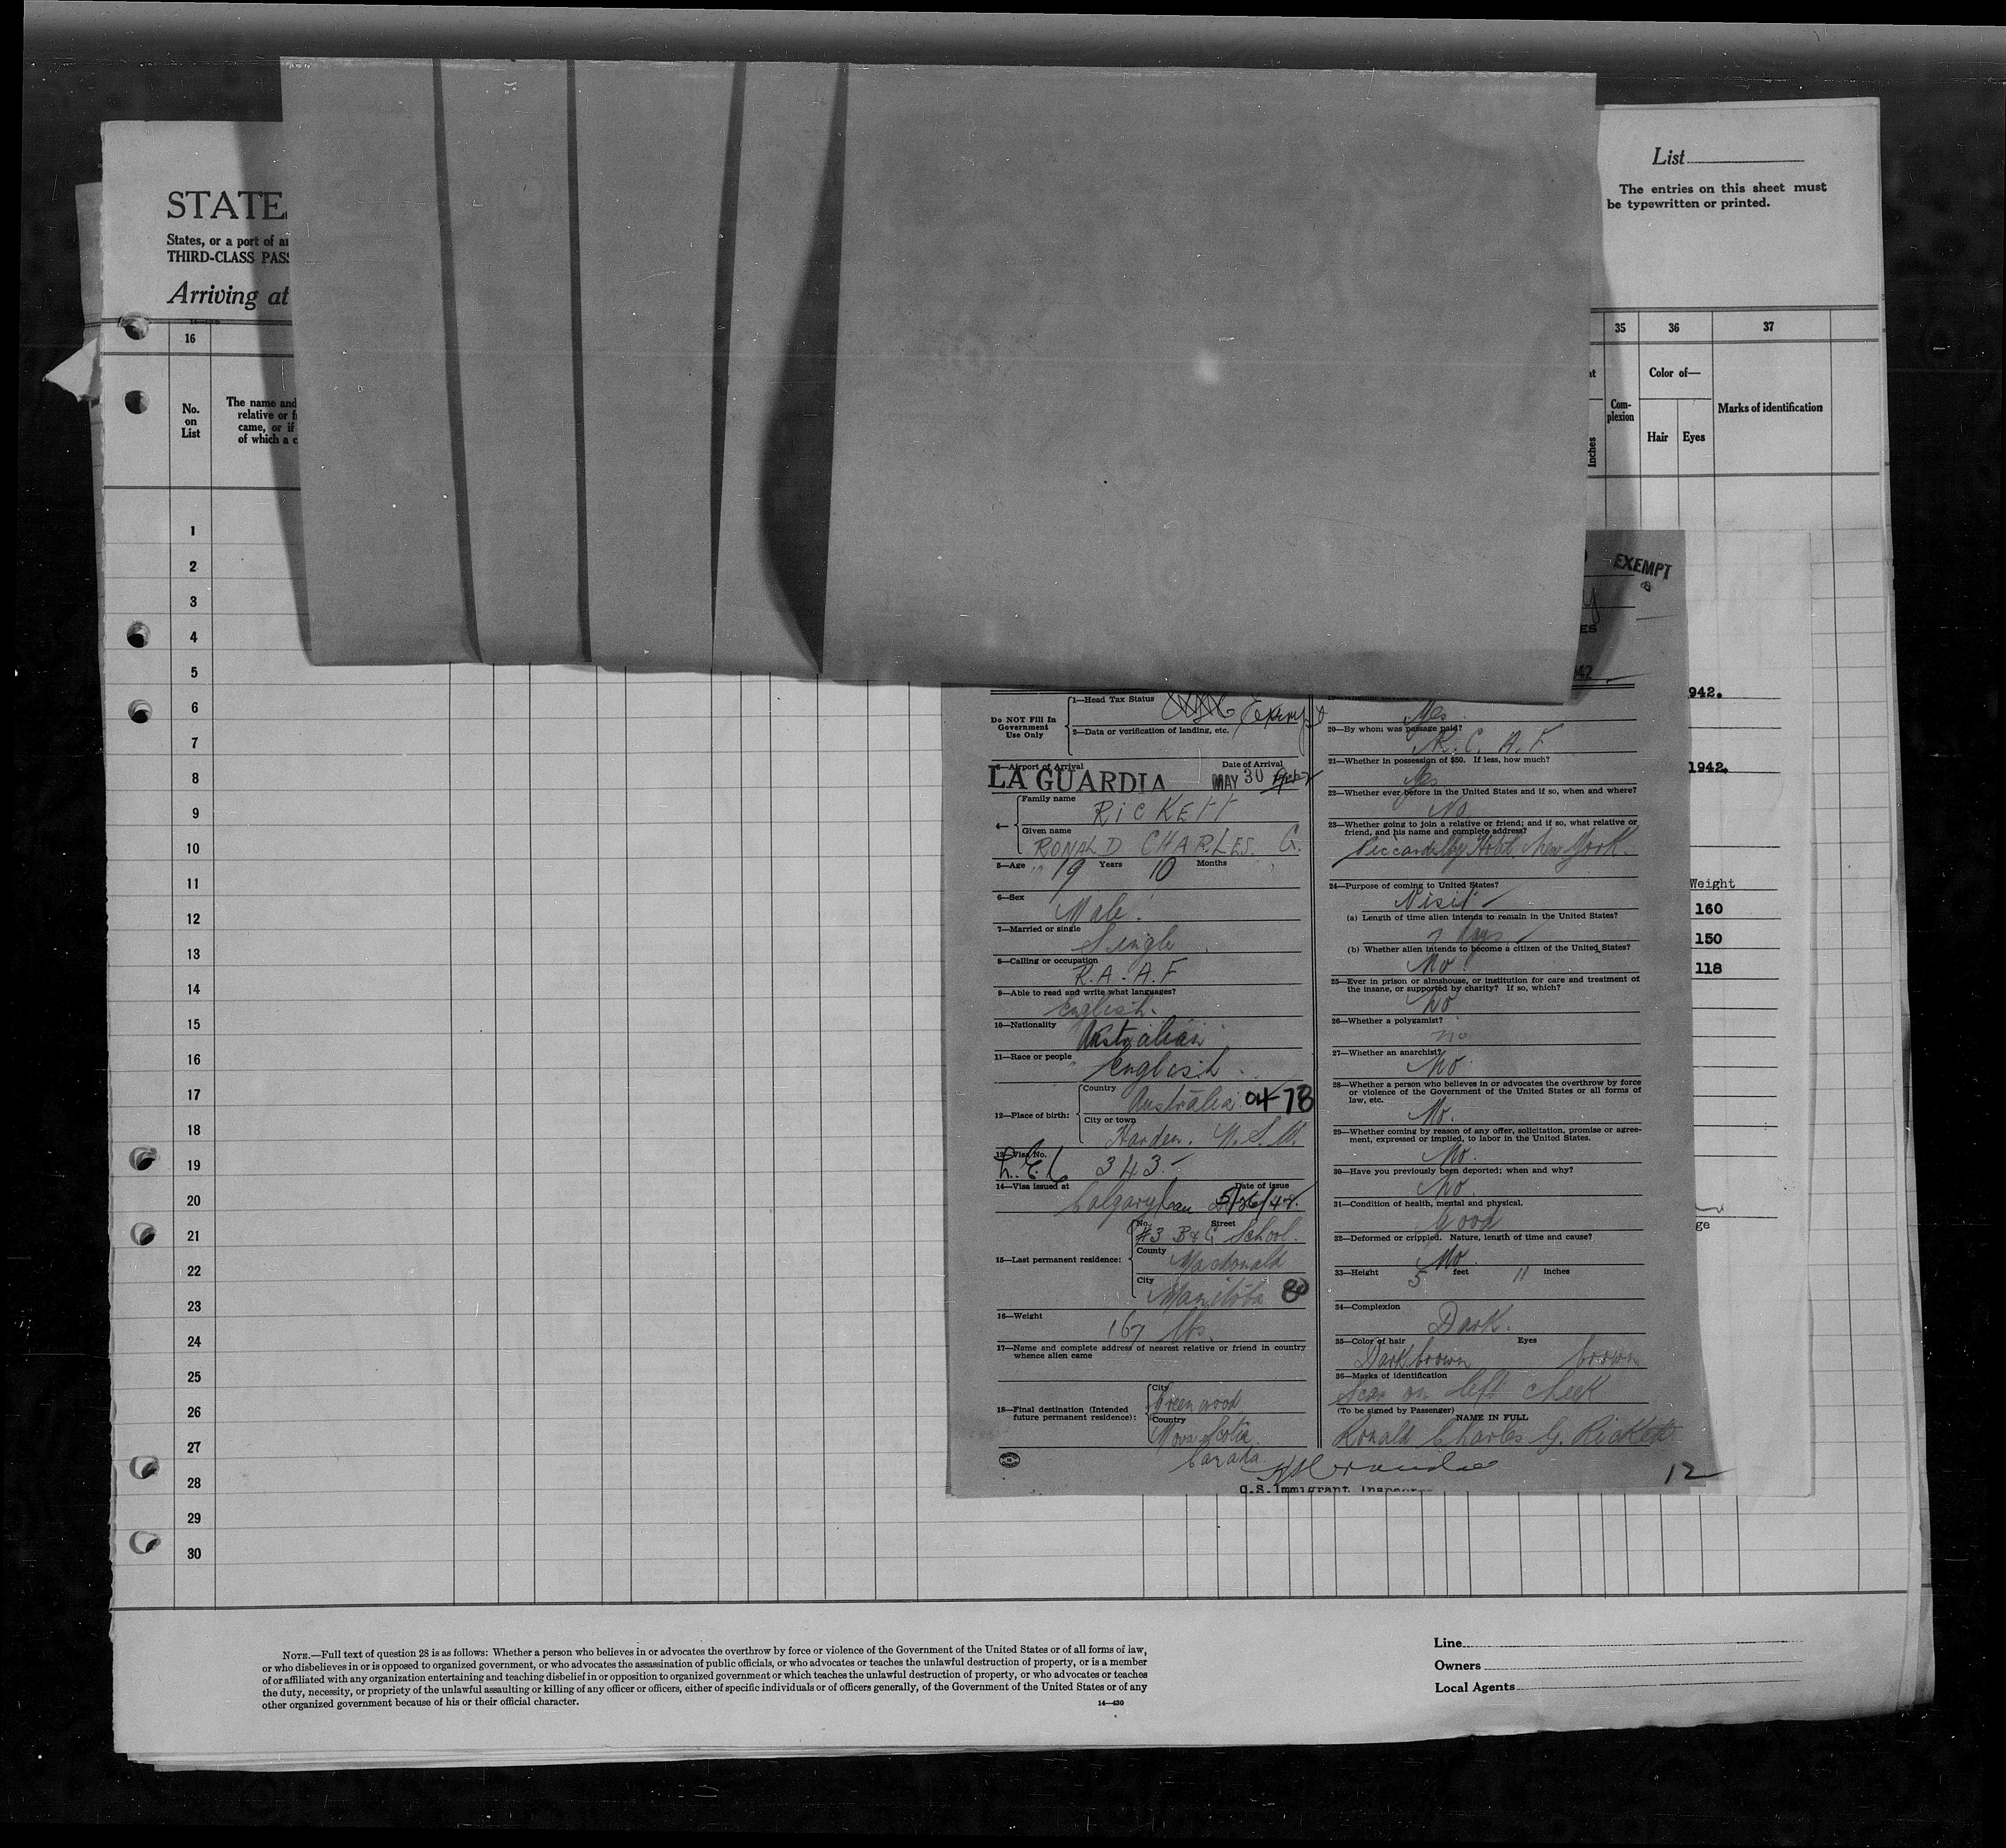 List
The entries on this sheet must
be typewritten or printed.
STATE
States, or a port of
THIRD-CLASS PASS
Arriving at
16
35
36
37
No.
on
List
The name and
relative or
came, or if
of which a
Com-
plexion
Color of—
Hair
Eyes
Marks of identification
Inches
1
2
3
4
5
6
7
8
9
10
11
12
13
14
15
16
17
18
19
20
21
22
23
24
25
26
27
28
29
30
EXEMPT
942.
1942.
Weight
160
150
118
Do NOT Fill In
Government
Use Only
1—Head Tax Status
2—Data or verification of landing, etc.
3—Airport of Arrival
Date of Arrival
LA GUARDIA MAY 30
4—
Family name
RICKETT
Given name
RONALD CHARLES G.
5—Age 19 Years 10 Months
6—Sex
Male.
7—Married or single
Single
8—Calling or occupation
R.A.A.F
9—Able to read and write what languages?
English.
10—Nationality
Australian
11—Race or people
English
12—Place of birth:
Country
Australia 04-78
City or town
Harden. N.S.W.
13—Visa No.
343
14—Visa issued at
Date of issue
Calgary Can 5/26/42
15—Last permanent residence:
No. Street
#3 B&G School.
County
Macdonald
City
Manitoba
16—Weight
167 lbs.
17—Name and complete address of nearest relative or friend in country
whence alien came
18—Final destination (Intended
future permanent residence):
City
Greenwood
Country
Nova Scotia
Canada
Yes
20—By whom was passage paid?
R.C.A.F
21—Whether in possession of $50. If less, how much?
Yes
22—Whether ever before in the United States and if so, when and where?
No
23—Whether going to join a relative or friend; and if so, what relative or
friend, and his name and complete address?
Piccadilly Hotel New York.
24—Purpose of coming to United States?
Visit
(a) Length of time alien intends to remain in the United States?
(b) Whether alien intends to become a citizen of the United States?
No
25—Ever in prison or almshouse, or institution for care and treatment of
the insane, or supported by charity? If so, which?
No
26—Whether a polygamist?
no
27—Whether an anarchist?
No
28—Whether a person who believes in or advocates the overthrow by force
or violence of the Government of the United States or all forms of
law, etc.
No.
29—Whether coming by reason of any offer, solicitation, promise or agree-
ment, expressed or implied, to labor in the United States.
No.
30—Have you previously been deported; when and why?
No.
31—Condition of health, mental and physical.
Good
32—Deformed or crippled. Nature, length of time and cause?
No.
33—Height 5 feet 11 inches
34—Complexion
Dark.
35—Color of hair Eyes
Dark brown brown
36—Marks of identification
Scar on left cheek
(To be signed by Passenger)
NAME IN FULL
Ronald Charles G. Rickett
12
U.S. Immigrant Inspector
NOTE.—Full text of question 28 is as follows: Whether a person who believes in or advocates the overthrow by force or violence of the Government of the United States or of all forms of law,
or who disbelieves in or is opposed to organized government, or who advocates the assassination of public officials, or who advocates or teaches the unlawful destruction of property, or is a member
of or affiliated with any organization entertaining and teaching disbelief in or opposition to organized government or which teaches the unlawful destruction of property, or who advocates or teaches
the duty, necessity, or propriety of the unlawful assaulting or killing of any officer or officers, either of specific individuals or of officers generally, of the Government of the United States or of any
other organized government because of his or their official character.
14—430
Line
Owners
Local Agents